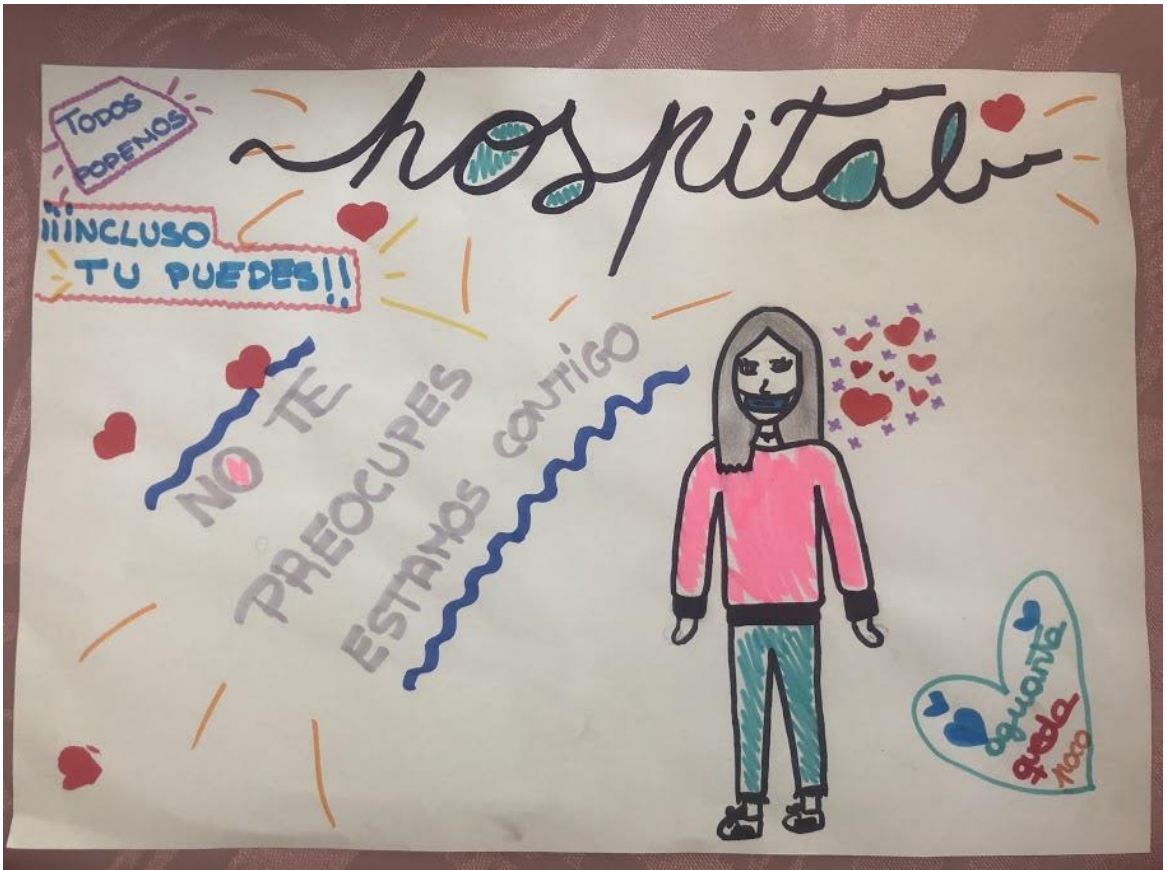 TODOS
PODEMOS
hospital
¡¡¡INCLUSO
TU PUEDES!!
NO TE
PREOCUPES
ESTAMOS CONTIGO
aguanta
queda
poco